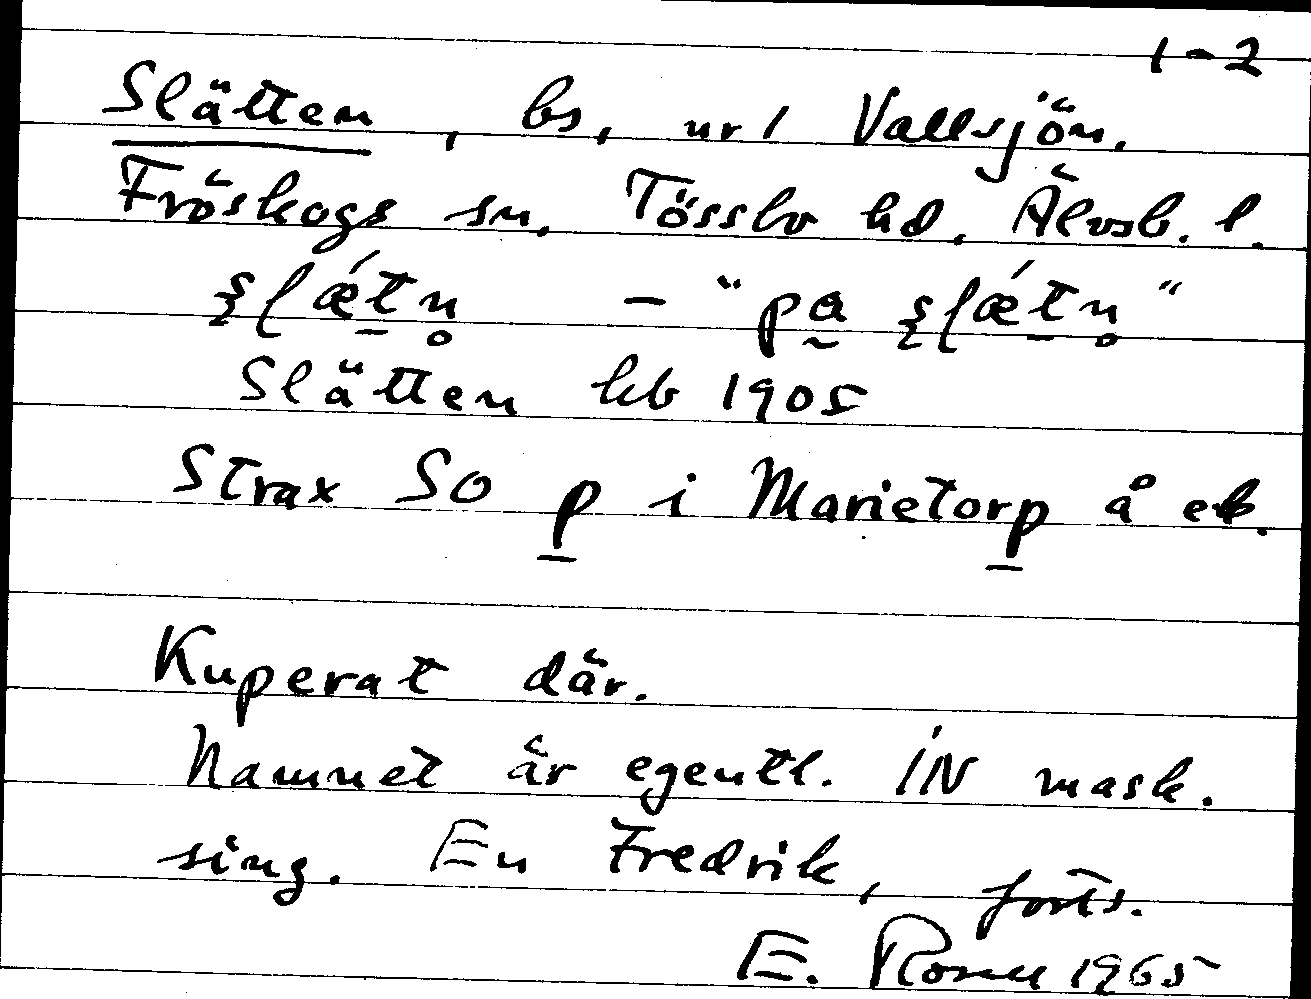 1-2
Slätten, bs, ur 1 Vallsjön.
Fröskogs sn. Tössbo hd. Älvsb. l.
ʂlǽtn̥ - "pa ʂlǽtn̥"
Slätten kb 1905
Strax SO p i Marietorp å eb.
Kuperat där.
Namnet är egentl. IN mask.
sing. En Fredrik, forts.
E. Rosell 1965